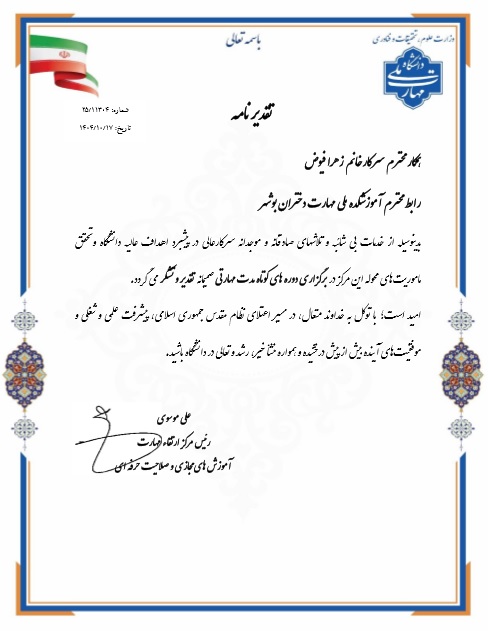 باسمه تعالی
وزارت علوم، تحقیقات و فناوری
دانشگاه
ملی
مهارت
شماره: ۲۵/۱۱۳۰۴
تاریخ: ۱۴۰۴/۱۰/۱۷
تقدیرنامه
همکار محترم سرکار خانم زهرا فیوض
رابط محترم آموزشکده ملی مهارت دختران بوشهر
بدینوسیله از خدمات بی شائبه و تلاشهای صادقانه و موجدانه سرکارعالی در پیشبرد اهداف عالیه دانشگاه و تحقق
ماموریت‌های محوله این مرکز در برگزاری دوره های کوتاه مدت مهارتی صمیمانه تقدیر و تشکر می گردد.
امید است؛ با توکل به خداوند متعال، در مسیر اعتلای نظام مقدس جمهوری اسلامی، پیشرفت علمی و شغلی و
موفقیت‌های آینده بیش از پیش درخشیده و همواره منشأ خیر، رشد و تعالی در دانشگاه باشید.
علی موسوی
رئیس مرکز ارتقاء مهارت
آموزش های مجازی و صلاحیت حرفه ای